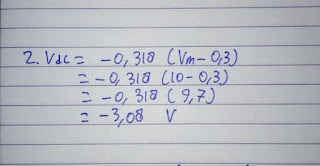 2. Vdc = -0,318 (Vm-0,3)
= -0,318 (10-0,3)
= -0,318 (9,7)
= -3,08 V